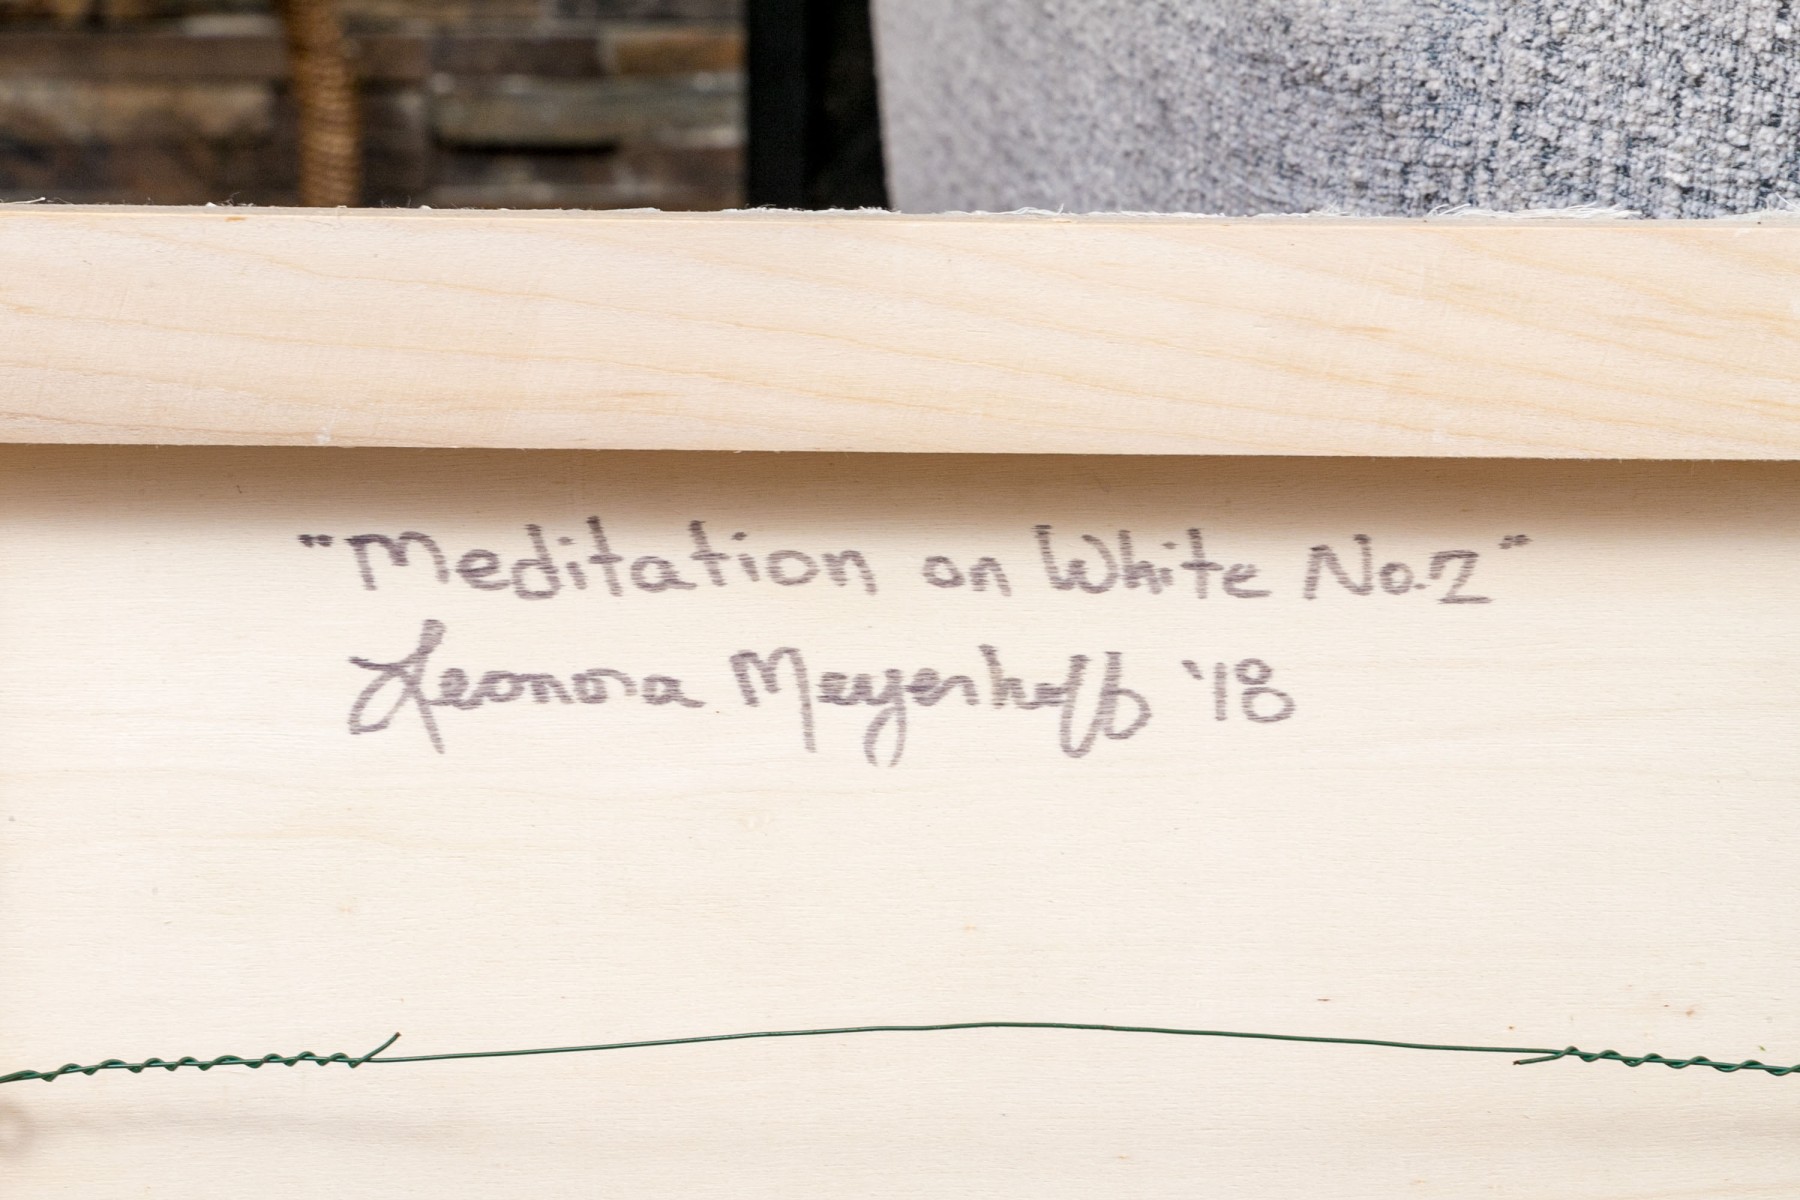 "Meditation on White No.2"
Leonora Meyerhoff '18